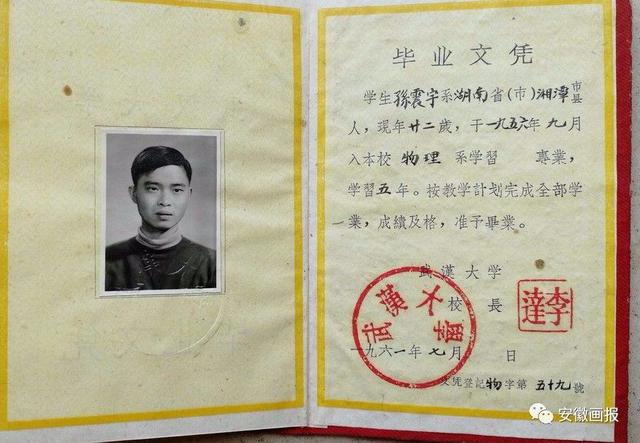 毕业文凭
学生孫震宇系湖南省(市)湘潭市縣
人，現年廿二歲，于一九五六年九月
入本校物理系学習 專業，
学習五年。按教学計划完成全部学
業，成績及格，准予畢業。
武漢大学
校長
李達
武漢大學
一九六一年七月 日
文凭登記物字第五十九號
安徽画报